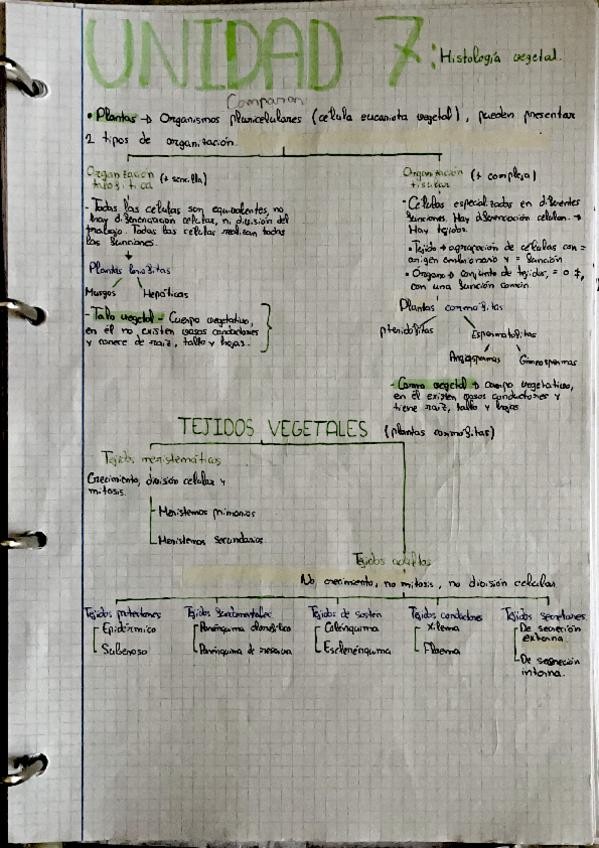 UNIDAD 7: Histología vegetal.
Comparan
• Plantas → Organismos pluricelulares (célula eucariota vegetal), pueden presentar
2 tipos de organización.
Organización (+ sencilla)
talofítica
- Todas las células son equivalentes, no
hay diferenciación celular, ni división del
trabajo. Todas las células realizan todas
las funciones.
Plantas briofitas
Musgos
Hepáticas
- Talo vegetal - Cuerpo vegetativo,
en él no existen vasos conductores
y carece de raíz, tallo y hojas.
Organización (+ compleja)
tisular
• Células especializadas en diferentes
funciones. Hay diferenciación celular. →
Hay tejidos.
• Tejido → agrupación de células con =
origen embrionario y = función
• Órgano → conjunto de tejidos, = o ≠,
con una función común.
Plantas cormofitas
pteridofitas
Espermatofitas
Angiospermas
Gimnospermas
- Cormo vegetal → cuerpo vegetativo,
en él existen vasos conductores y
tiene raíz, tallo y hojas
TEJIDOS VEGETALES (plantas cormofitas)
Tejidos meristemáticos
Crecimiento, división celular y
mitosis.
Meristemos primarios
Meristemos secundarios
Tejidos adultos
No crecimiento, no mitosis, no división celular
Tejidos protectores
Epidérmico
Suberoso
Tejidos fundamentales
Parénquima clorofílico
Parénquima de reserva
Tejidos de sostén
Colénquima
Esclerénquima
Tejidos conductores
Xilema
Floema
Tejidos secretores
De secreción
externa
De secreción
interna.